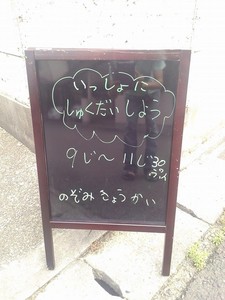 いっしょに
しゅくだいしよう
9じ～11じ30ぷん
のぞみきょうかい